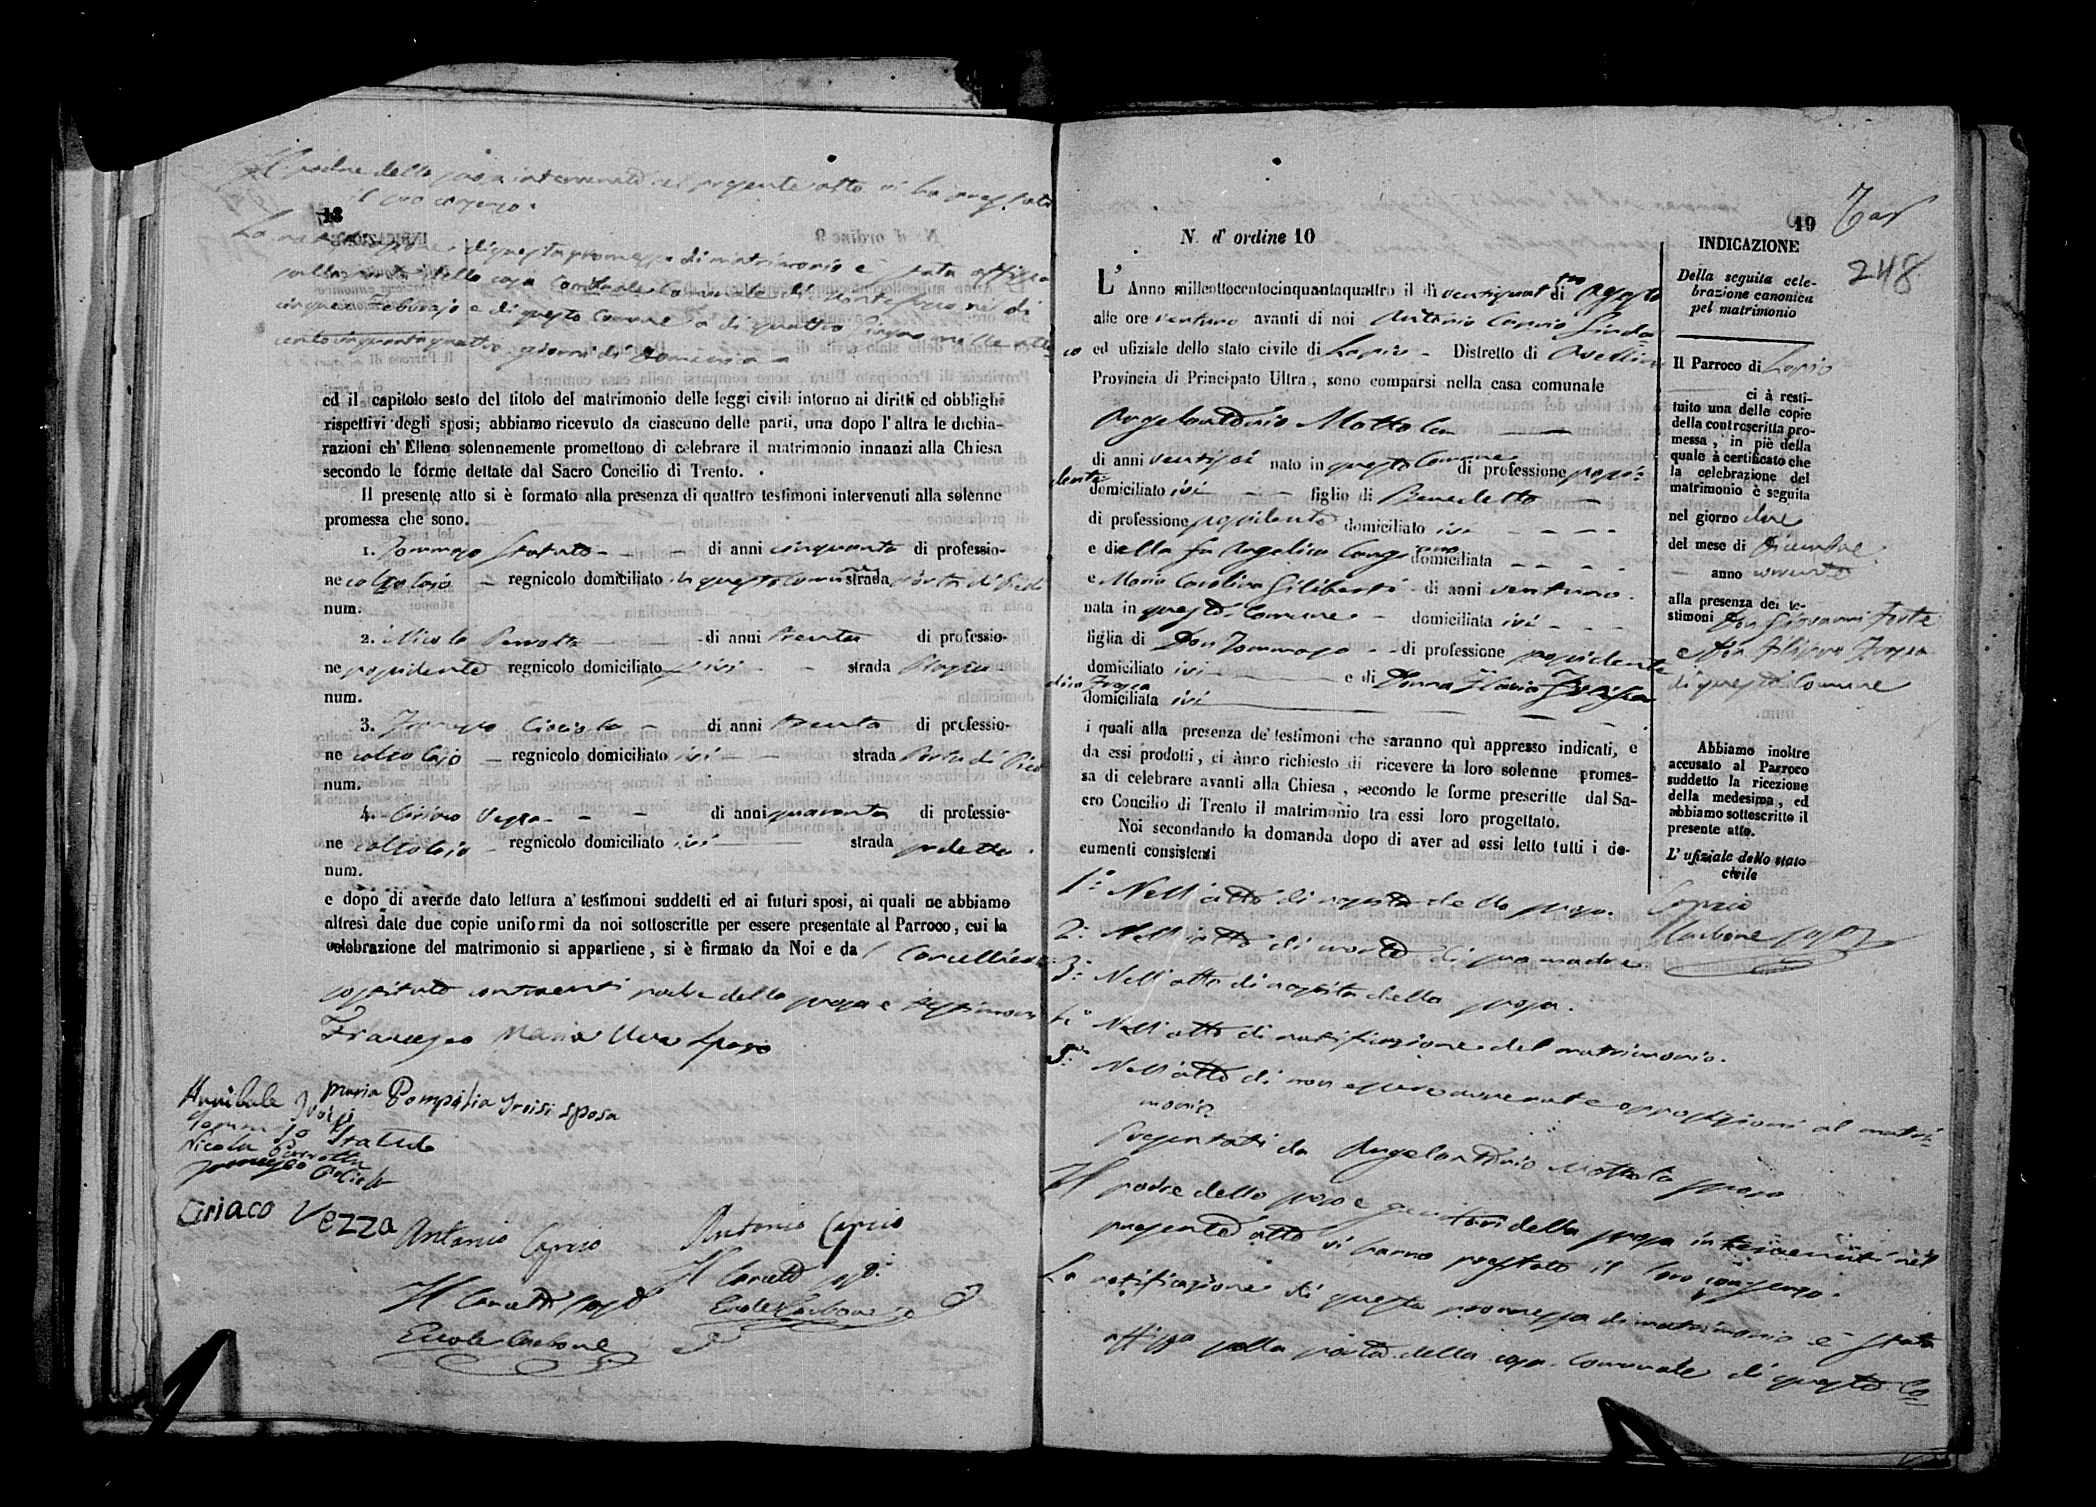 Il padre della sposa intervenuto nel presente atto vi ha prestato
il suo consenso.
18
La notificazione di questa promessa di matrimonio è stata affissa
sulla porta della casa Comunale di
cinque Febbrajo e di questo Comune a di quattro Giugno mille otto
cento cinquantaquattro giorni di Domenica
ed il capitolo sesto del titolo del matrimonio delle leggi civili intorno ai diritti ed obblighi
rispettivi degli sposi; abbiamo ricevuto da ciascuno delle parti, una dopo l'altra le dichia-
razioni ch'Elleno solennemente promettono di celebrare il matrimonio innanzi alla Chiesa
secondo le forme dettate dal Sacro Concilio di Trento.
Il presente atto si è formato alla presenza di quattro testimoni intervenuti alla solenne
promessa che sono.
1. Tommaso Statuto - di anni cinquanta di professio-
ne calzolajo - regnicolo domiciliato in questo Comune strada Porta di
num.
2. Nicola Perrotta - di anni trenta di professio-
ne possidente regnicolo domiciliato ivi - strada
num.
3. Tommaso Ciociola - di anni trenta di professio-
ne calzolajo - regnicolo domiciliato ivi - strada Porta di
num.
4. Ciriaco Vezza - di anni quaranta di professio-
ne calzolajo - regnicolo domiciliato ivi strada suddetta.
num.
e dopo di averne dato lettura a' testimoni suddetti ed ai futuri sposi, ai quali ne abbiamo
altresì date due copie uniformi da noi sottoscritte per essere presentate al Parroco, cui la
celebrazione del matrimonio si appartiene, si è firmato da Noi e da Cancelliere
sostituto contraenti padre della sposa e testimoni
Francesco Maria sposo
Maria Pompilia Troisi sposa
Annibale Troisi
Tommaso Statuto
Nicola Perrotta
Tommaso
Ciriaco Vezza
Antonio Caprio Antonio Caprio
Il Cancell Sost Il Cancell sost
Ercole Carbone Ercole Carbone
19
248
N. d'ordine 10
L'Anno millottocentocinquantaquattro il dì ventiquattro di Agosto
alle ore ventuno avanti di noi Antonio Caprio Sinda-
co ed ufiziale dello stato civile di Lapio - Distretto di Avellino
Provincia di Principato Ultra, sono comparsi nella casa comunale
Angelantonio Mottola
di anni ventisei nato in questo Comune di professione possi-
dente domiciliato ivi - figlio di Benedetto -
di professione possidente domiciliato ivi -
e della fu Angelica domiciliata -
e Maria Carolina Giliberti - di anni ventuno.
nata in questo Comune - domiciliata ivi -
figlia di Don Tommaso - di professione possidente
domiciliato ivi - e di Donna
domiciliata ivi
i quali alla presenza de' testimoni che saranno quì appresso indicati, e
da essi prodotti, ci ànno richiesto di ricevere la loro solenne promes-
sa di celebrare avanti alla Chiesa, secondo le forme prescritte dal Sa-
cro Concilio di Trento il matrimonio tra essi loro progettato.
Noi secondando la domanda dopo di aver ad essi letto tutti i do-
cumenti consistenti
1.° Nell'atto di nascita dello sposo.
2.° Nell'atto di morte di sua madre
3.° Nell'atto di nascita della sposa.
4.° Nell'atto di notificazione del matrimonio.
5.° Nell'atto di non essere avvenute opposizioni al matri-
monio
presentati da Angelantonio Mottola sposo
Il padre dello sposo e genitori della sposa intervenuti nel
presente atto vi hanno prestato il loro consenso.
La notificazione di questa promessa di matrimonio è stata
affissa sulla porta della casa Comunale di questo Co=
INDICAZIONE
Della seguita cele-
brazione canonica
pel matrimonio
Il Parroco di Lapio
ci à resti-
tuito una delle copie
della controscritta pro-
messa, in piè della
quale à certificato che
la celebrazione del
matrimonio è seguita
nel giorno due
del mese di Dicembre
anno corrente
alla presenza dei te-
stimoni Don Giovanni Forte
e Don Filippo Troisi
di questo Comune
Abbiamo inoltre
accusato al Parroco
suddetto la ricezione
della medesima, ed
abbiamo sottoscritto il
presente atto.
L'ufiziale dello stato
civile
Caprio
Carbone sost